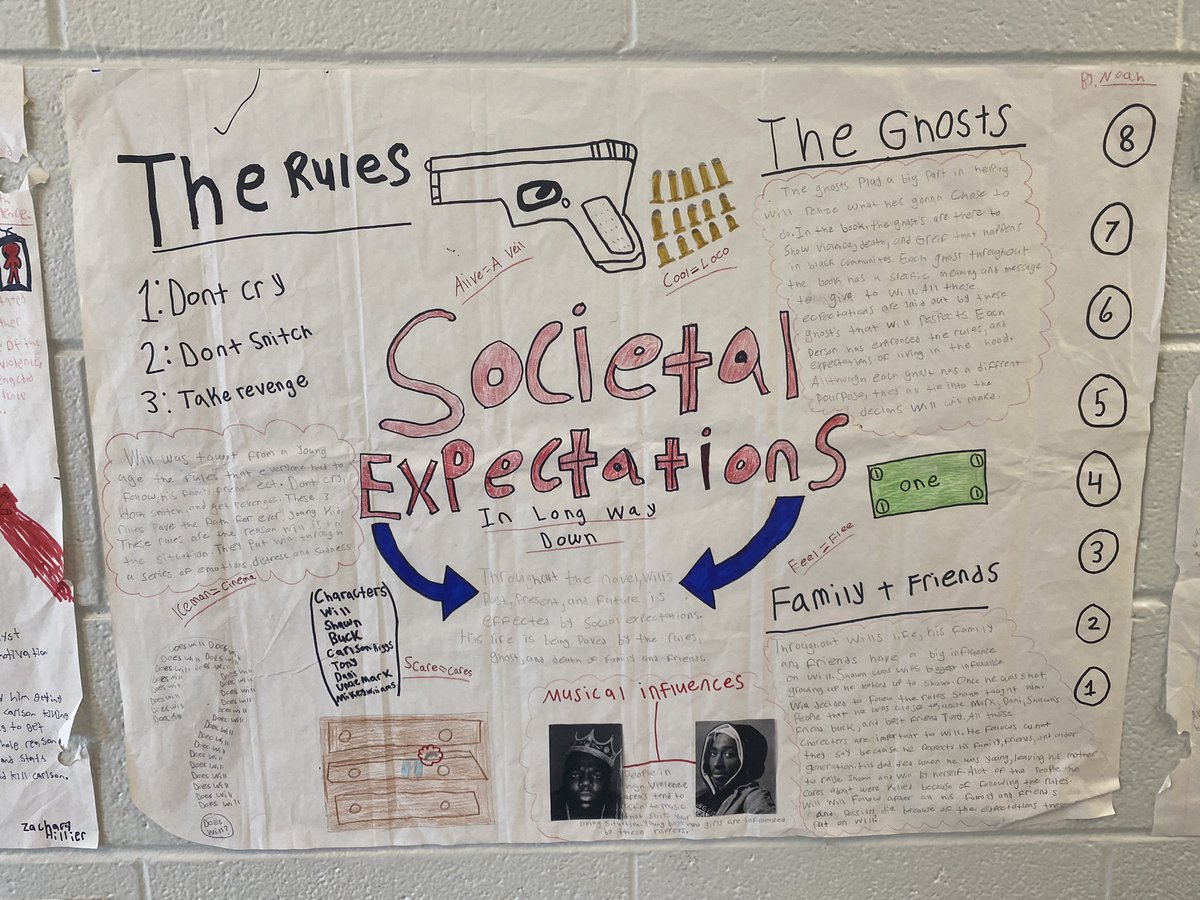 By: Noah
The Rules
1: Dont cry
2: Dont Snitch
3: Take revenge
Will was taught from a young
age the rules that everyone had to
Follow, his family friends ect. Dont cry,
dont snitch, and get revenge. These 3
rules Pave the Path for every young Kid.
These rules are the reason Will is in
the situation. They put Will through
a series of emotions, distress and sadness
Iceman=Cinema
Alive=A Veil
Cool=Loco
Societal
Expectations
In Long Way
Down
Throughout the novel, Wills
Past, Present, and Future is
effected by social expectations.
His life is being Paved by the rules,
ghost, and death of Family and Friends.
The Ghosts
The ghosts Play a big Part in helping
Will relize what hes gonna Chose to
do. In the book, the ghosts are there to
Show violence, death, and Greif that happens
in black communites. Each ghost throughout
the book has a Meaning and message
to give to Will. All these
expectations are laid out by these
ghosts that Will respects. Each
Person has exprenced the rules, and
expectations of living in the hood.
Although each ghost has a diffrent
Pourpose, they all tie into the
decions Will will make.
8
7
6
5
4
3
2
1
1
1
one
1
1
Feel=Flee
Characters
Will
Shawn
Buck
Carlson Riggs
Tony
Dani
Uncle Mark
Mikey Williams
Scare=Cares
Does Will Does Will
Does Will Does Will
Does Will Does Will
Does Will Does Will
Does Will
Does Will
Does Will
Does Will
Does Will
Does Will
Does Will
Does Will
Does Will
Does Will
Does Will?
Musical influences
People in
high Violence
areas tend to
listen to music
that suits your
living situation. Young boys and girls are influenced
by these rappers.
Family + Friends
Throughout Wills life, his Family
and Friends have a big influence
on Will. Shawn was Wills biggest influence
growing up he looked up to Shawn. Once he was shot
Will decided to Follow the rules Shawn taught him.
People that he was close to uncle Mark, Dani, Shawns
Friend buck, and best Friend Tony. All these
Charecters are important to Will. He Follows what
they say because he respects his Family, Friends, and older
generation. His dad died when he was young, leaving his mother
to raise Shawn and Will by herself. Alot of the People he
cares about were killed because of following the rules.
Will Will Follow after all his Family and Friends
and Possibly die because of the expectations these
Put on Will?
Zachary
Hillier